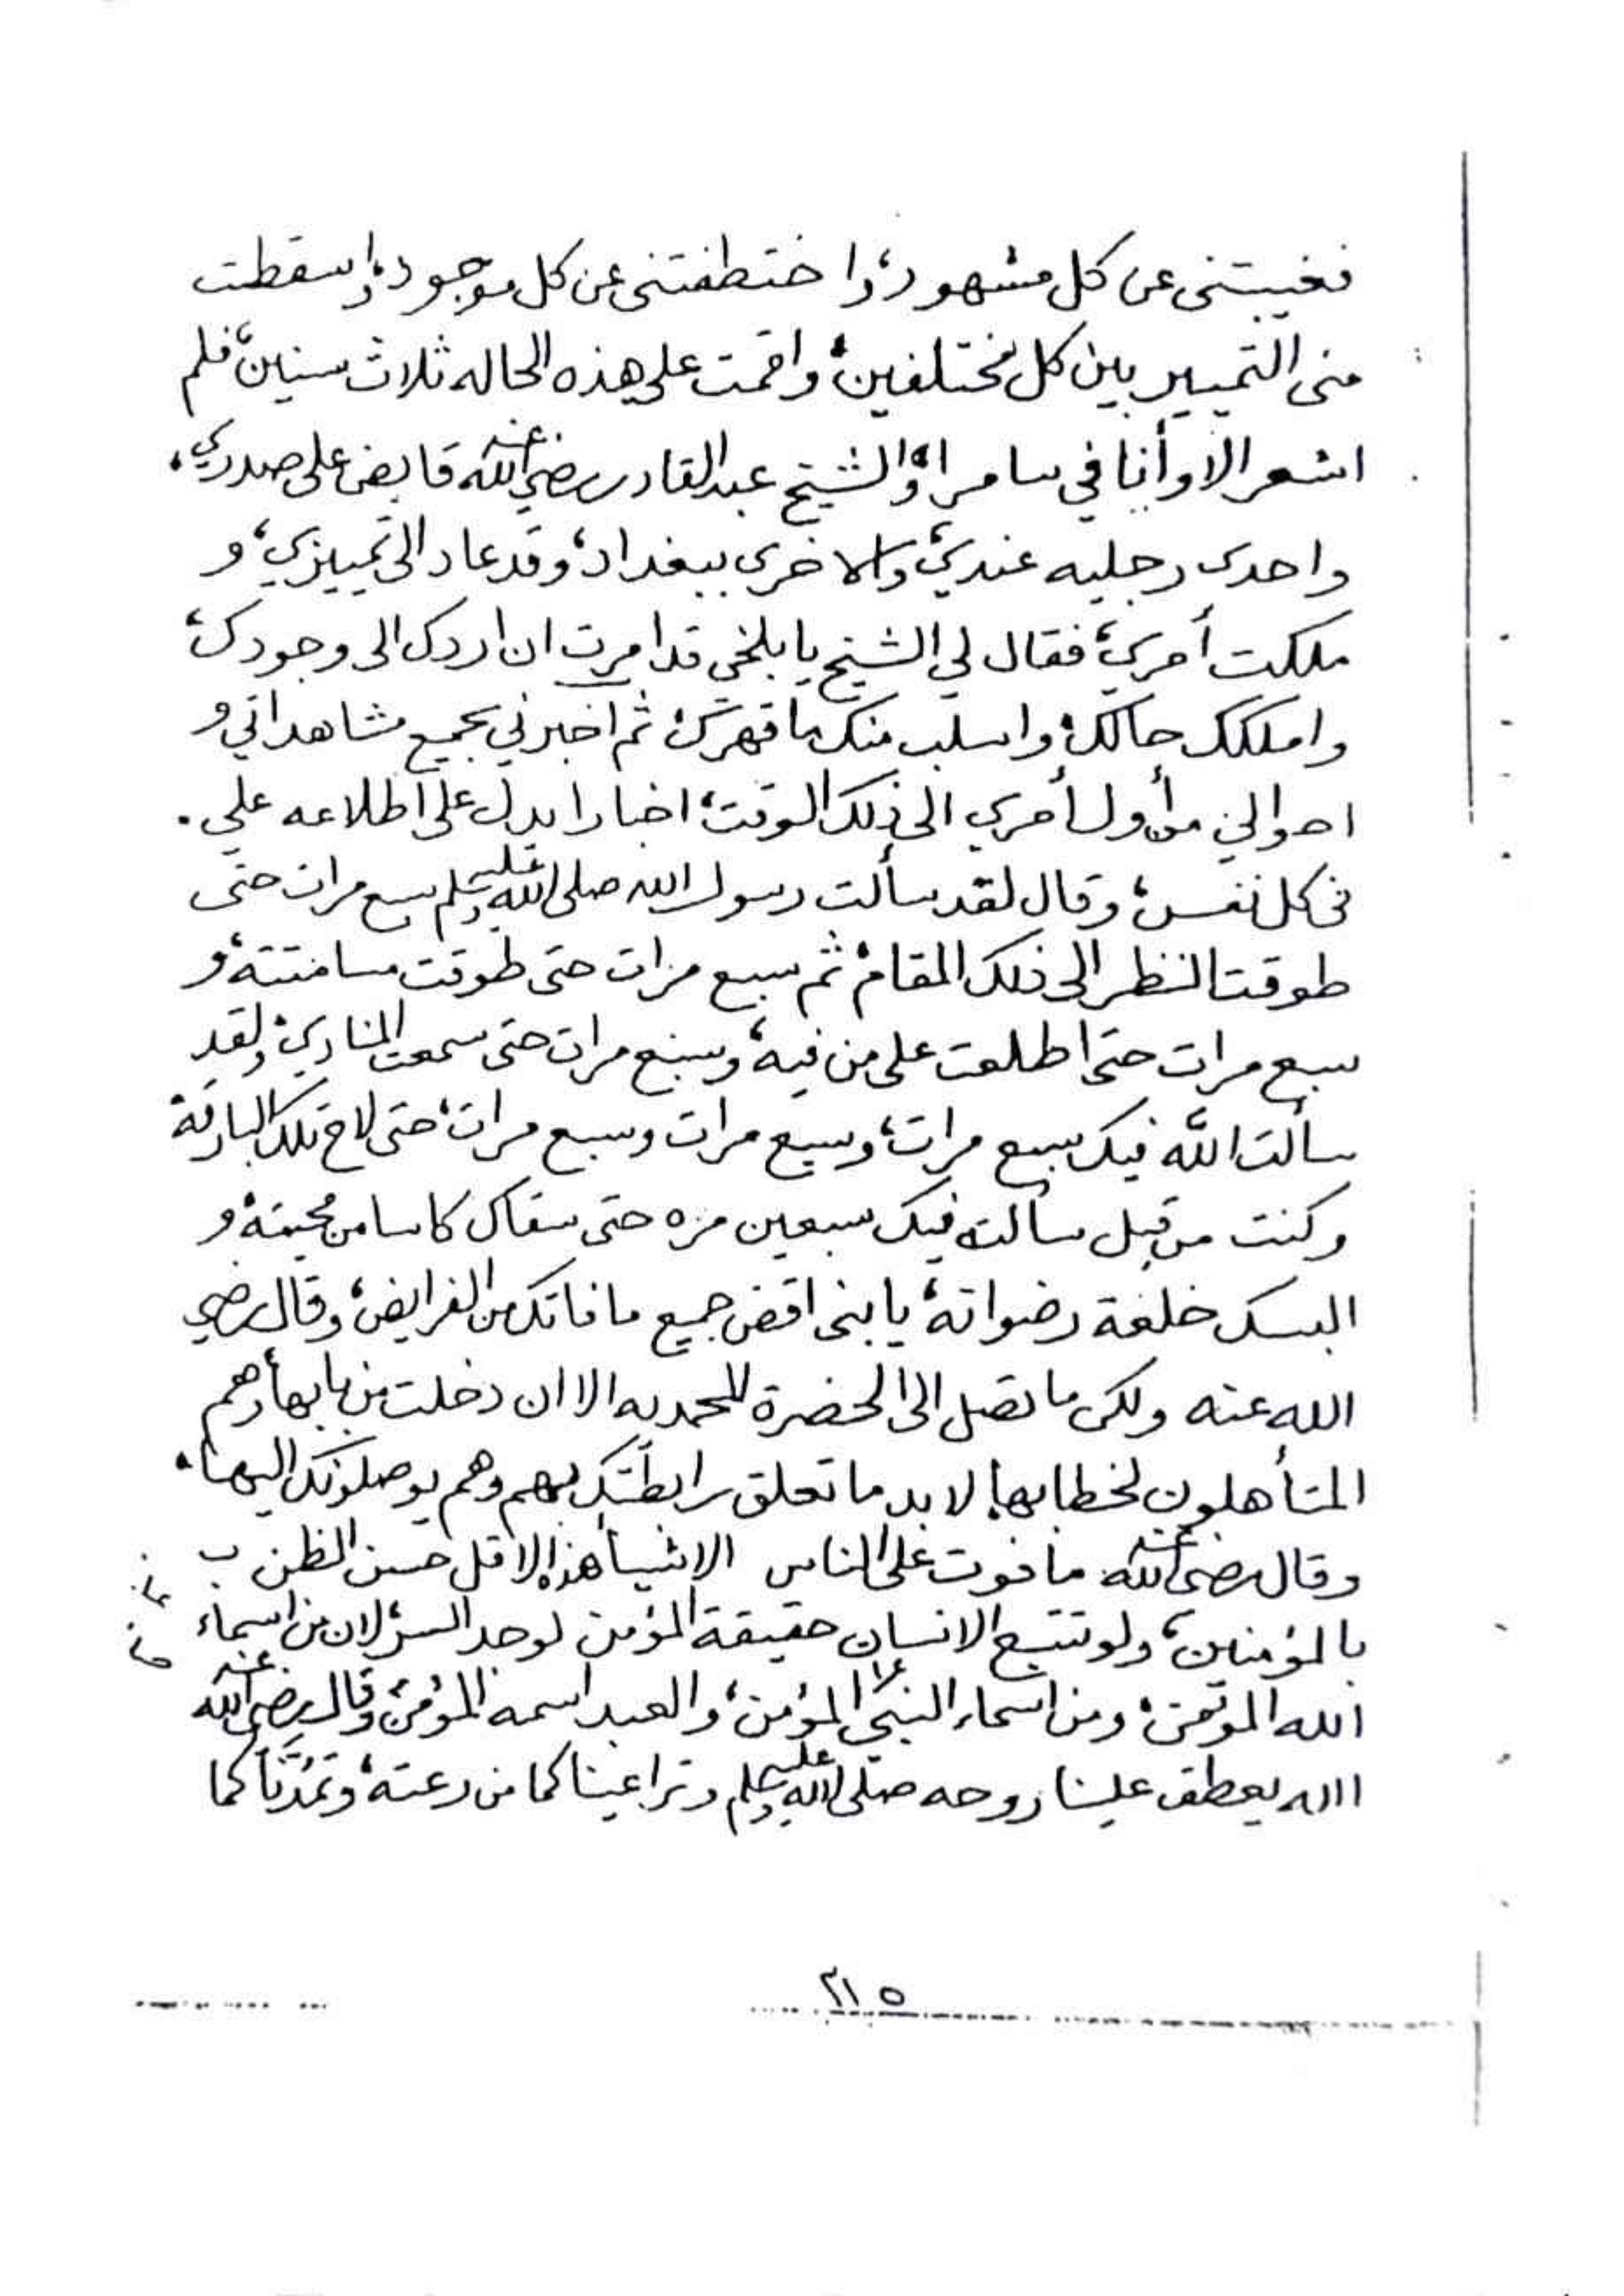 فغيبتنى عن كل مشهود، واختطفتنى عن كل موجود، واسقطت
منى التمييز بين كل مختلفين، واقمت على هذه الحاله ثلاث سنين، فلم
اشعر الا وأنا في سامرا، والشيخ عبدالقادر رضي الله عنه قابض على صدري،
واحدى رجليه عندي، والاخرى ببغداد، وقد عاد الى تمييزي، و
ملكت أمري، فقال لي الشيخ يا بلخي قد امرت ان اردك الى وجودك،
واملكك حالك، واسلب منك ما قهرك، ثم اخبرني بجميع مشاهداتي و
احوالي من أول أمري الى ذلك الوقت، اخبارا يدل على اطلاعه علي
فى كل نفس، وقال لقد سألت رسول الله صلى الله عليه وسلم سبع مرات حتى
طوقت النظر الى ذلك المقام، ثم سبع مرات حتى طوقت مسامتته، و
سبع مرات حتى اطلعت على من فيه، وسبع مرات حتى سمعت المنادي، ولقد
سألت الله فيك سبع مرات، وسبع مرات وسبع مرات، حتى لاح تلك البارقة
وكنت من قبل سألته فيك سبعين مره حتى سقاك كاسا من محبته، و
البسك خلعة رضوانه، يا بنى اقض جميع ما فاتك من الفرايض، وقال رضي
الله عنه ولكن ما تصل الى الحضرة المحمديه الا ان دخلت من بابها وهم
المتأهلون لخطابها، لا بد ما تعلق رابطتك بهم وهم يوصلونك اليها،
وقال رضي الله عنه ما فوت على الناس الاشيأ هذه الا قل حسن الظن ب
بالمؤمنين، ولو تتبع الانسان حقيقة المؤمن لوجد السر، لان من اسماء
الله المؤمن، ومن اسماء النبي المؤمن، والعبد اسمه المؤمن، وقال رضي الله عنه
الله يعطف علينا روحه صلى الله عليه وسلم وتراعينا كما من رعته، وتمدنا كما
٣١٥